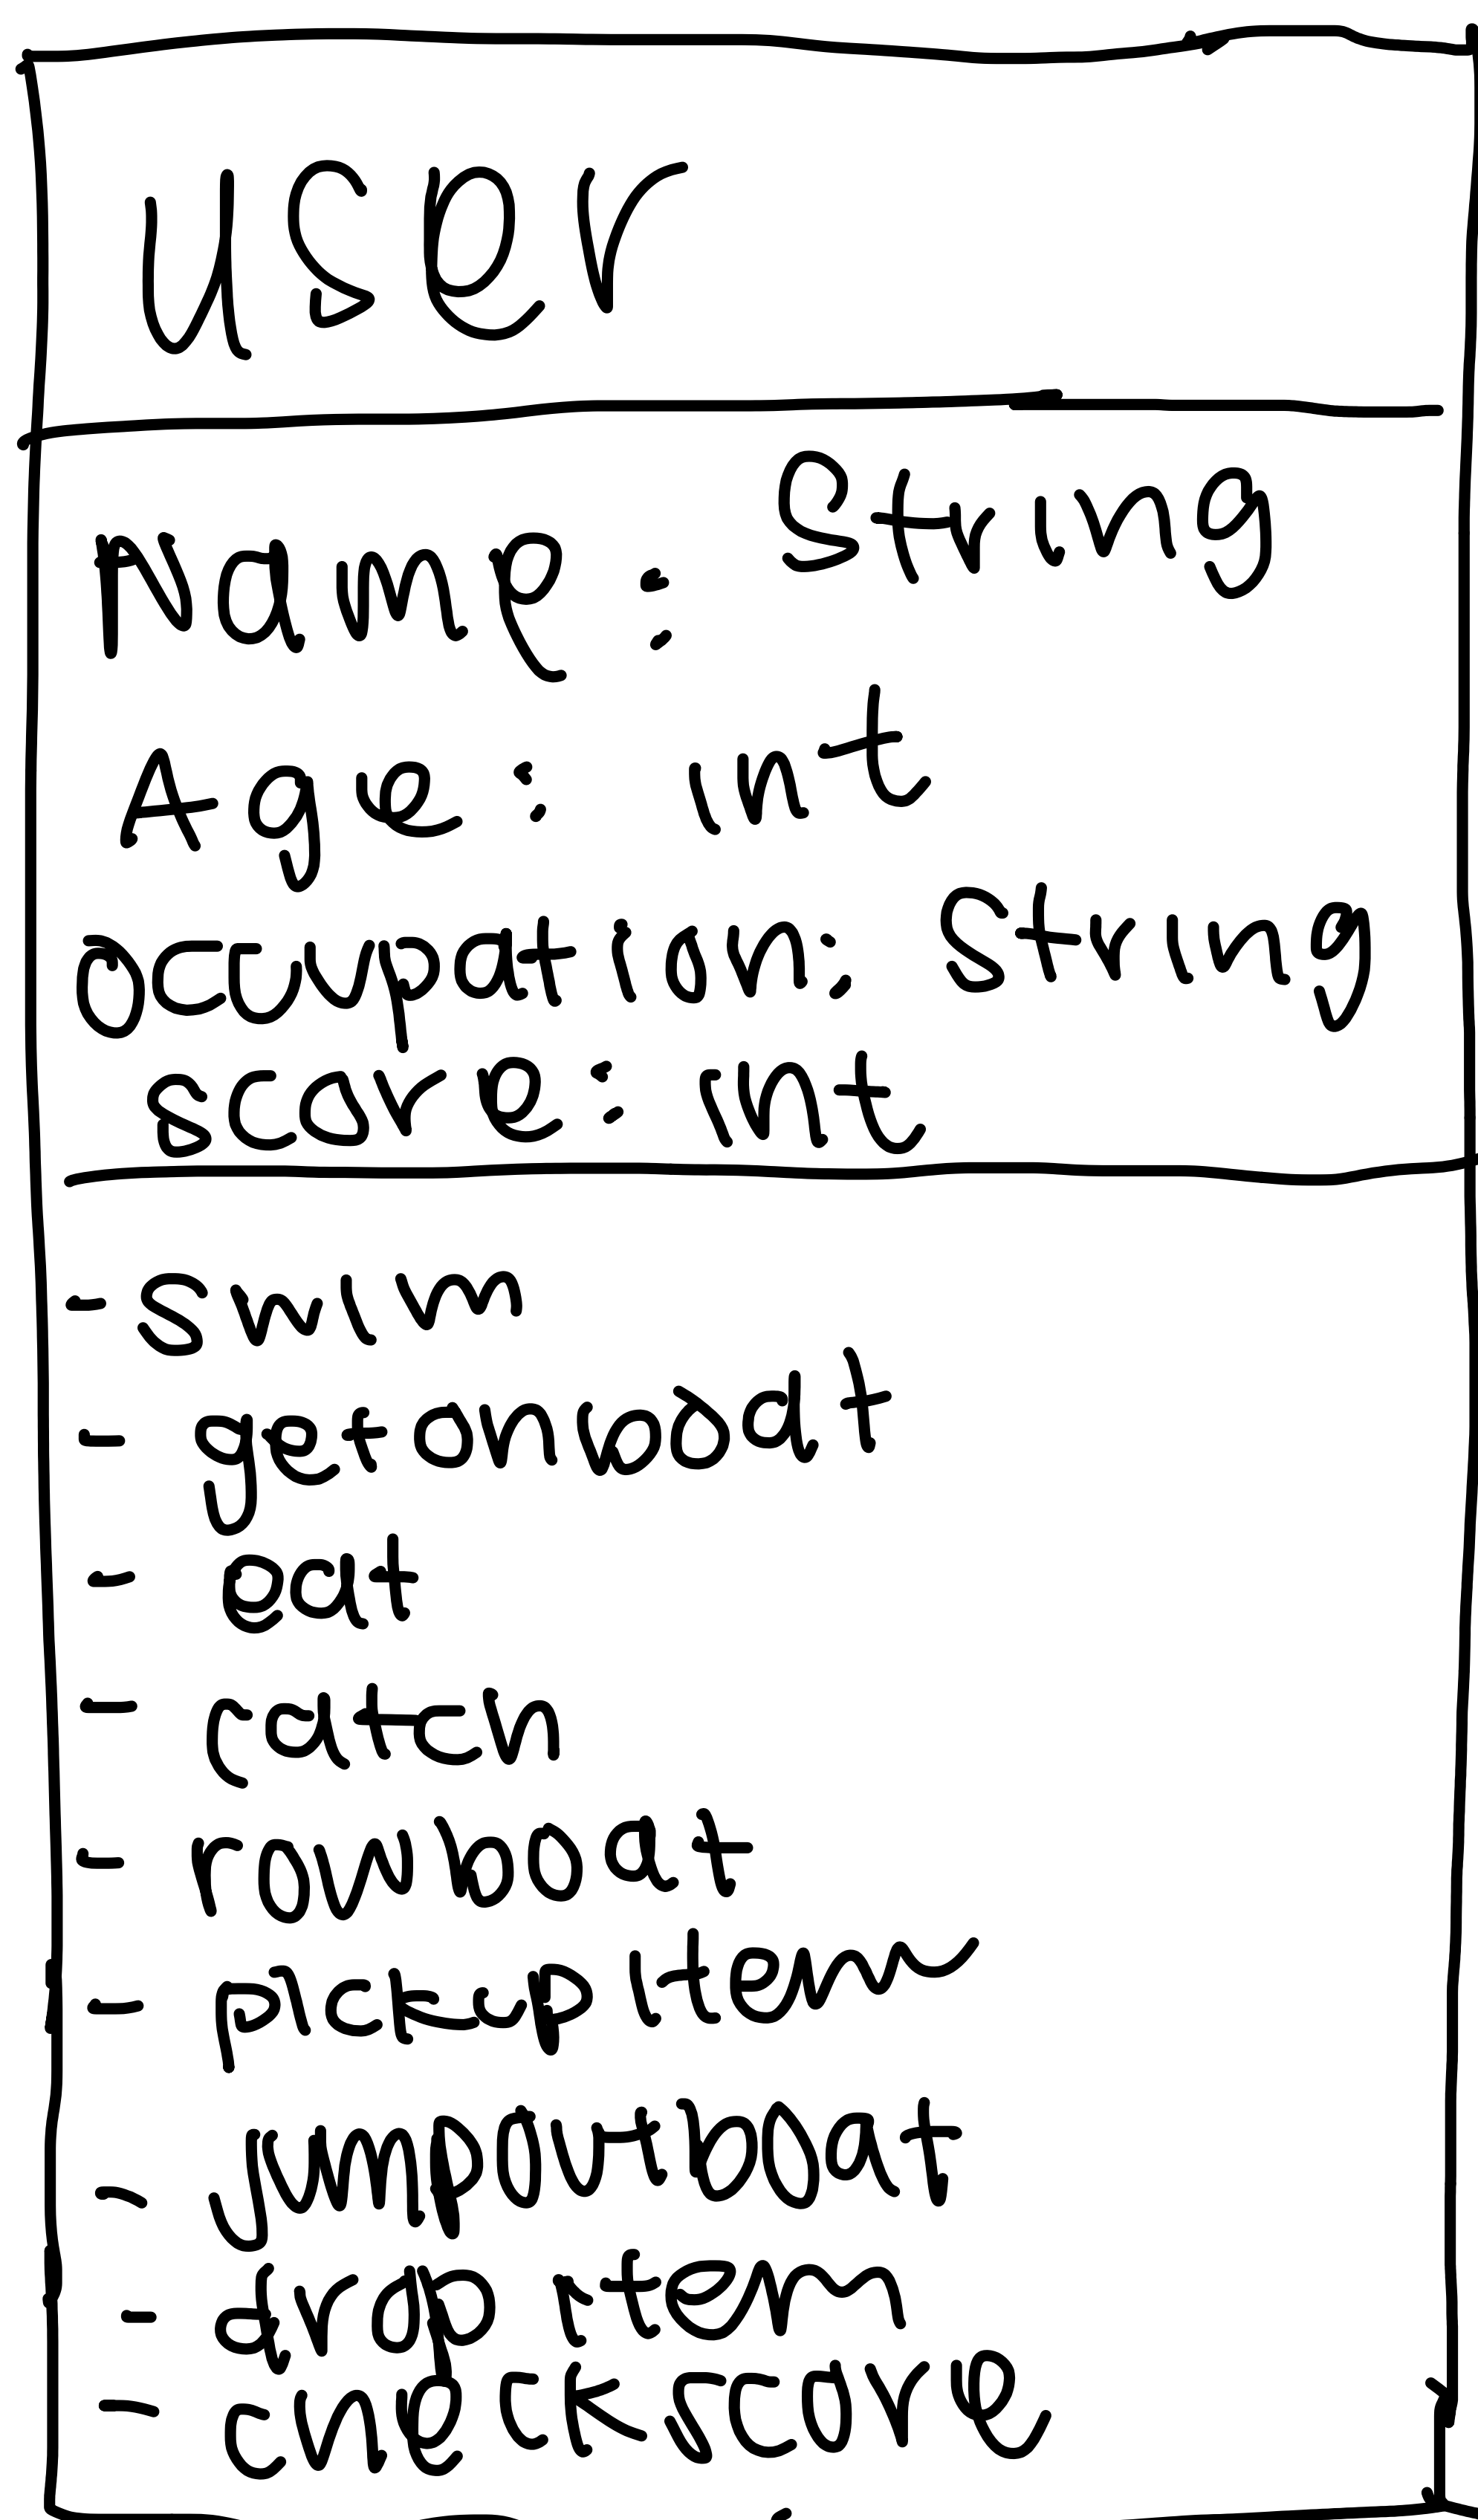 user
Name: String
Age: int
Ocuupation: String
score: int
- swim
- getonboat
- eat
- catch
- rowboat
- pickupitem
- jumpoutboat
- drop item
- checkscore